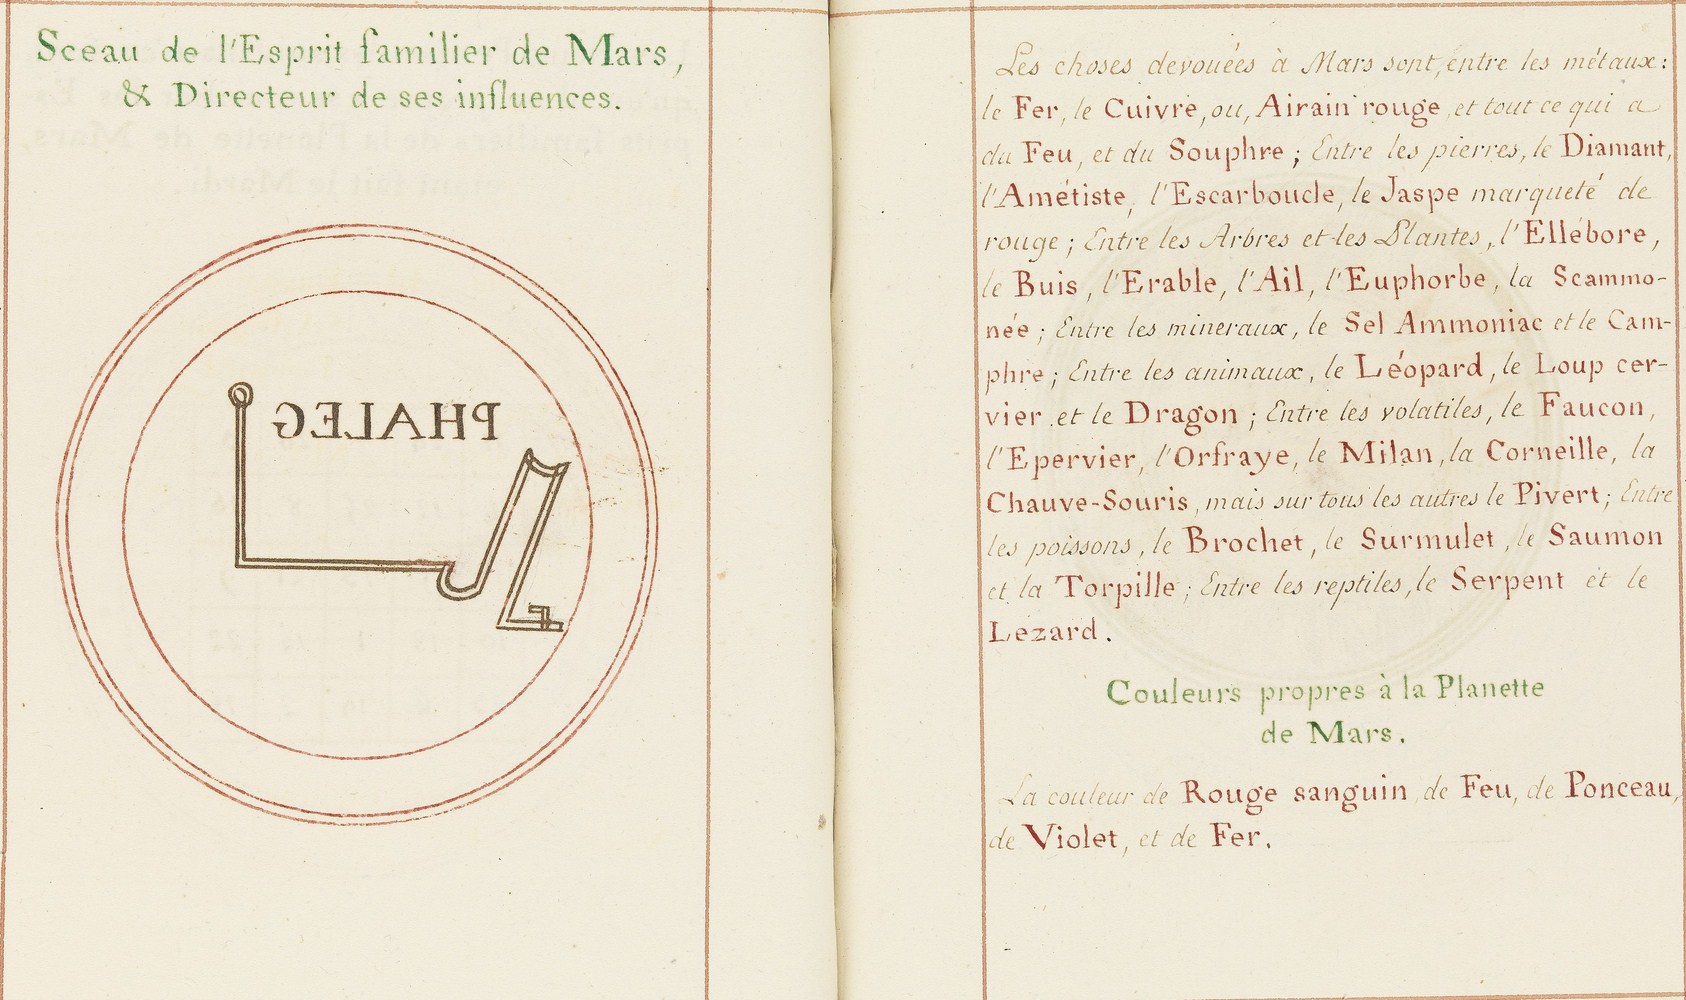 Sceau de l'Esprit familier de Mars,
& Directeur de ses influences.
PHALEG
Les choses devouées à Mars sont, entre les métaux:
le Fer, le Cuivre, ou, Airain rouge, et tout ce qui a
du Feu, et du Souphre; Entre les pierres, le Diamant,
l'Amétiste, l'Escarboucle, le Jaspe marqueté de
rouge; Entre les Arbres et les Plantes, l'Ellébore,
le Buis, l'Erable, l'Ail, l'Euphorbe, la Scammo-
née; Entre les mineraux, le Sel Ammoniac et le Cam-
phre; Entre les animaux, le Léopard, le Loup cer-
vier et le Dragon; Entre les volatiles, le Faucon,
l'Epervier, l'Orfraye, le Milan, la Corneille, la
Chauve-Souris, mais sur tous les autres le Pivert; Entre
les poissons, le Brochet, le Surmulet, le Saumon
et la Torpille; Entre les reptiles, le Serpent et le
Lezard.
Couleurs propres à la Planette
de Mars.
La couleur de Rouge sanguin, de Feu, de Ponceau,
de Violet, et de Fer.